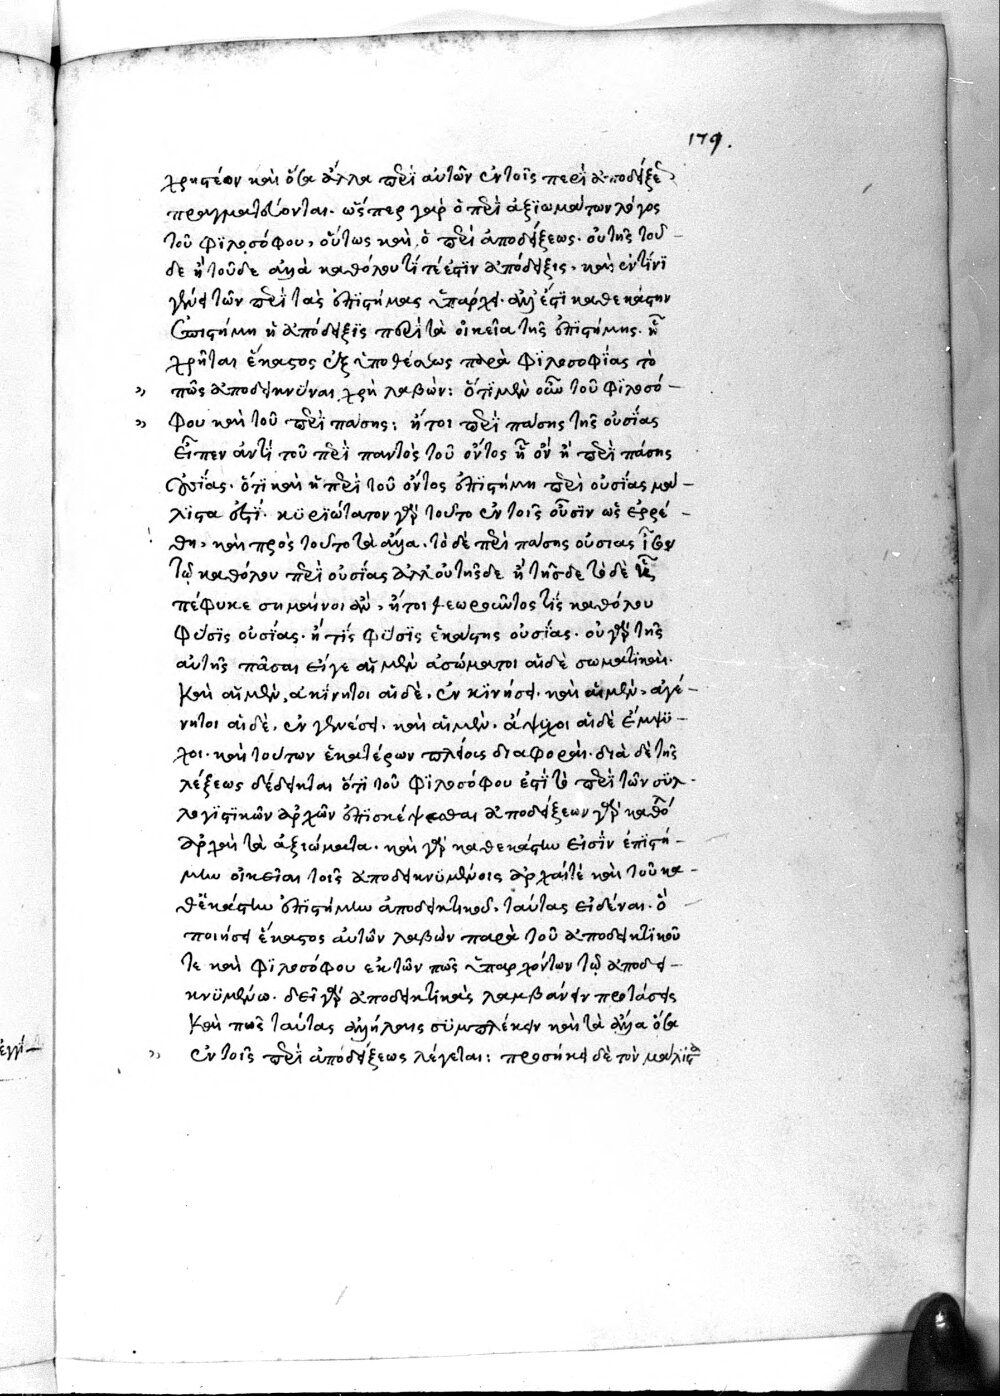 179.
χρηστέον καὶ ὅσα ἄλλα περὶ αὐτῶν ἐν τοῖς περὶ ἀποδείξε
πραγματεύονται. ὥσπερ γὰρ ὁ περὶ ἀξιωμάτων λόγος
τοῦ φιλοσόφου, οὕτως καὶ ὁ περὶ ἀποδείξεως. οὐ τῆς τοῦ-
δε ἢ τοῦδε ἀλλὰ καθόλου τί τέ ἐστιν ἀπόδειξις, καὶ ἐν τίνι
γένει τῶν περὶ τὰς ἐπιστήμας ὑπάρχει. ἀλλ' ἔστι καθ' ἑκάστην
ἐπιστήμη ἡ ἀπόδειξις περὶ τὰ οἰκεῖα τῆς ἐπιστήμης. ᾗ
χρῆται ἕκαστος ἐξ ὑποθέσεως παρὰ φιλοσοφίας τὸ
» πῶς ἀποδεικνύναι χρὴ λαβών: ὅτι μὲν οὖν τοῦ φιλοσό-
» φου καὶ τοῦ περὶ πάσης: ἤτοι περὶ πάσης τῆς οὐσίας
εἶπεν ἀντὶ τοῦ περὶ παντὸς τοῦ ὄντος ᾗ ὂν ἢ περὶ πάσης
οὐσίας. ὅτι καὶ ἡ περὶ τοῦ ὄντος ἐπιστήμη περὶ οὐσίας μά-
λιστα ἐστί. κυριώτατον γὰρ τοῦτο ἐν τοῖς οὖσιν ὡς ἐρρέ-
θη, καὶ πρὸς τοῦτο τὰ ἄλλα. τὸ δὲ περὶ πάσης οὐσίας ἴσον
τῷ καθόλου περὶ οὐσίας ἀλλ' οὐ τῆσδε ἢ τῆσδε τὸ δὲ ᾗ
πέφυκε σημαίνοι ἂν, ἤτοι θεωροῦντος τίς καθόλου
φύσις οὐσίας. ἢ τίς φύσις ἑκάστης οὐσίας. οὐ γὰρ τῆς
αὐτῆς πᾶσαι εἴγε αἱ μὲν ἀσώματοι αἱ δὲ σωματικαί.
καὶ αἱ μὲν, ἀκίνητοι αἱ δὲ, ἐν κινήσει. καὶ αἱ μὲν, ἀγέ-
νητοι αἱ δὲ, ἐν γενέσει. καὶ αἱ μὲν, ἄψυχοι αἱ δὲ ἔμψυ-
χοι. καὶ τούτων ἑκατέρων πλείους διαφοραί. διὰ δὲ τῆς
λέξεως δέδεικται ὅτι τοῦ φιλοσόφου ἐστὶ τὸ περὶ τῶν συλ-
λογιστικῶν ἀρχῶν ἐπισκέψασθαι ἀποδείξεων γὰρ καθὸ
ἀρχαὶ τὰ ἀξιώματα. καὶ γὰρ καθ' ἑκάστην εἰσὶν ἐπιστή-
μην οἰκεῖαι τοῖς ἀποδεικνυμένοις ἀρχαί τε καὶ τοῦ κα-
θ' ἑκάστην ἐπιστήμην ἀποδεικτικοῦ, ταύτας εἰδέναι. ὃ
ποιήσει ἕκαστος αὐτῶν λαβὼν παρὰ τοῦ ἀποδεικτικοῦ
τε καὶ φιλοσόφου ἐκ τῶν πῶς ὑπαρχόντων τῷ ἀποδει-
κνυμένῳ. δεῖ γὰρ ἀποδεικτικὰς λαμβάνειν προτάσεις
καὶ πῶς ταύτας ἀλλήλαις συμπλέκειν καὶ τὰ ἄλλα ὅσα
» ἐν τοῖς περὶ ἀποδείξεως λέγεται: προσήκει δὲ τὸν μάλιστα